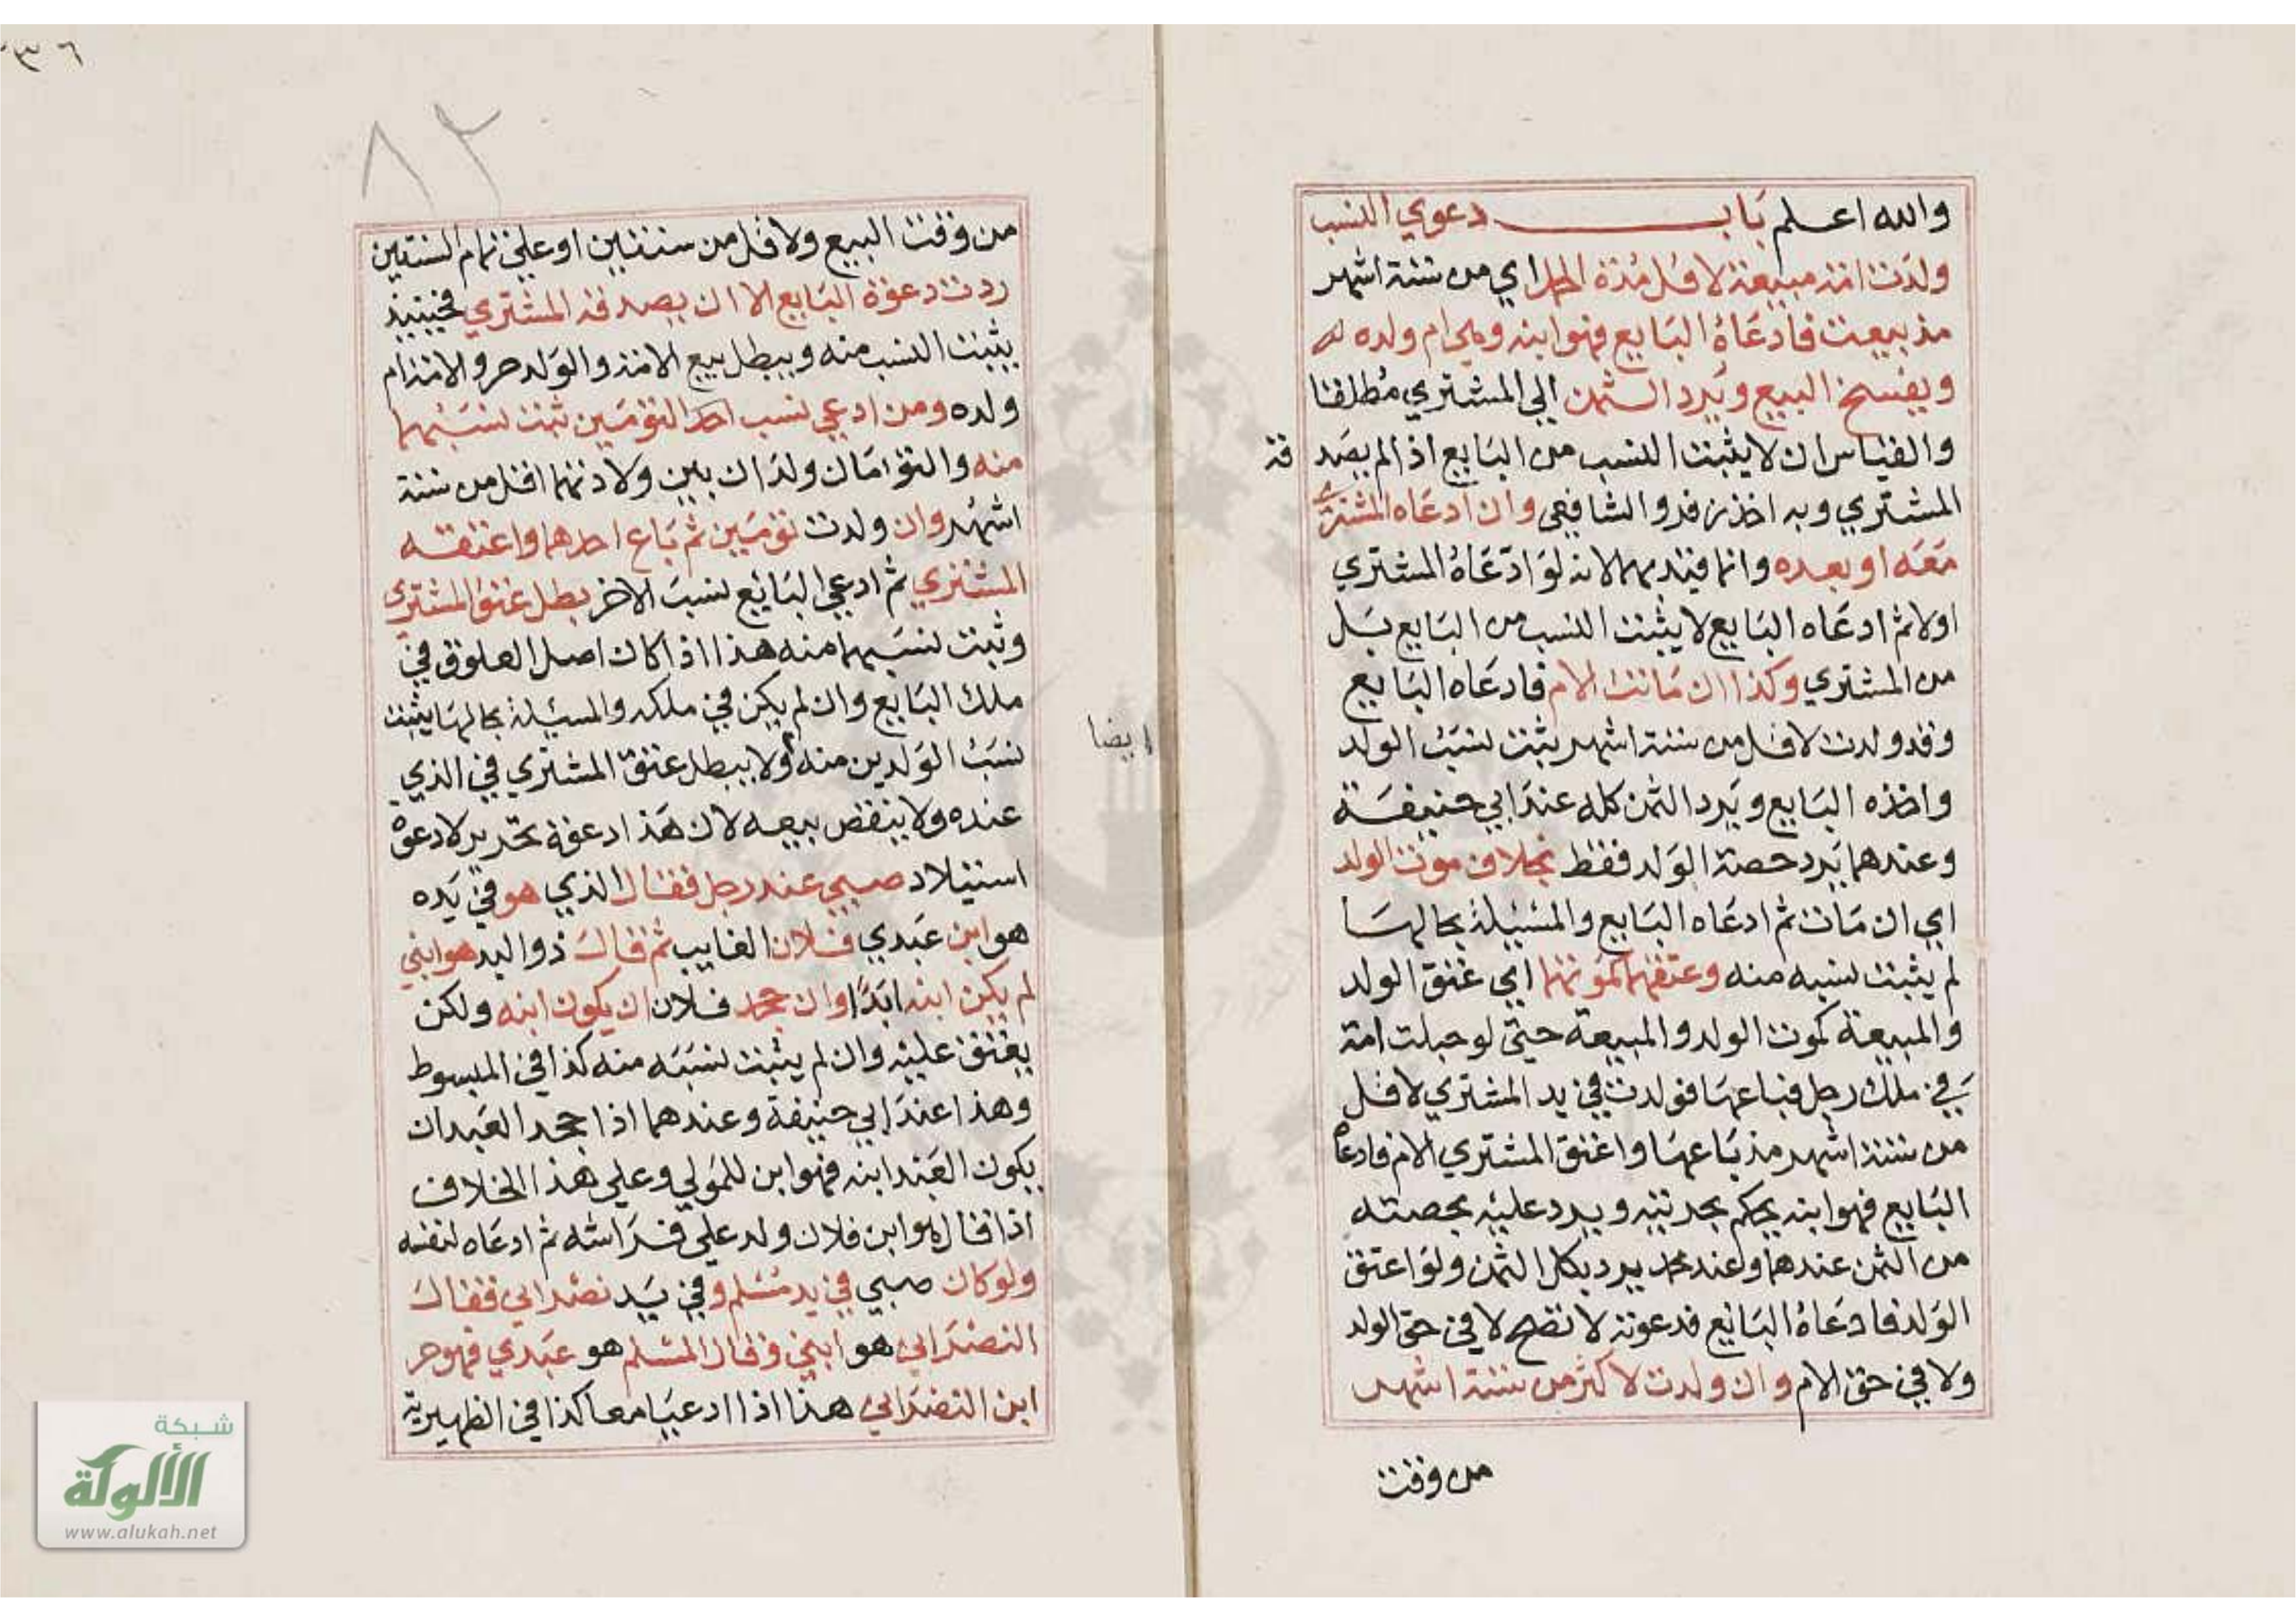 والله اعلم باب دعوي النسب
ولدت امة مبيعة لاقل مدة الحمل اي من ستة اشهر
مذ بيعت فادعاه البايع فهو ابنه وهي ام ولده له
ويفسخ البيع ويرد الثمن الي المشتري مطلقا
والقياس ان لا يثبت النسب من البايع اذا لم يصدقه
المشتري وبه اخذ زفر والشافعي وان ادعاه المشتري
معه او بعده وانما قيد بهما لانه لو ادعاه المشتري
اولا ثم ادعاه البايع لا يثبت النسب من البايع بل
من المشتري وكذا ان ماتت الام فادعاه البايع
وقد ولدت لاقل من ستة اشهر يثبت نسب الولد
واخذه البايع ويرد الثمن كله عند ابي حنيفة
وعندهما يرد حصة الولد فقط بخلاف موت الولد
اي ان مات ثم ادعاه البايع والمسئيلة بحالها
لم يثبت نسبه منه وعتقهما كموتهما اي عتق الولد
والمبيعة كموت الولد والمبيعة حتي لو حبلت امة
في ملك رجل فباعها فولدت في يد المشتري لاقل
من ستة اشهر مذ باعها واعتق المشتري الام فادعاه
البايع فهو ابنه يحكم بحريته ويرد عليه بحصته
من الثمن عندهما وعند محمد يرد بكل الثمن ولو اعتق
الولد فادعاه البايع فدعوته لا تصح لا في حق الولد
ولا في حق الام وان ولدت لاكثر من ستة اشهر
من وقت
٨٢
من وقت البيع ولاقل من سنتين او علي تمام السنتين
ردت دعوة البايع الا ان يصدقه المشتري فحينيذ
يثبت النسب منه ويبطل بيع الامة والولد حر والامة ام
ولده ومن ادعي نسب احد التومين ثبت نسبهما
منه والتوامان ولدان بين ولادتهما اقل من ستة
اشهر وان ولدت تومين ثم باع احدهما واعتقه
المشتري ثم ادعي البايع نسب الاخر بطل عتق المشتري
وثبت نسبهما منه هذا اذا كان اصل العلوق في
ملك البايع وان لم يكن في ملكه والمسئيلة بحالها يثبت
نسب الولدين منه ولا يبطل عتق المشتري في الذي
ايضا
عنده ولا ينقض بيعه لان هذا دعوة تحرير لا دعوة
استيلاد صبي عند رجل فقال الذي هو في يده
هو ابن عبدي فلان الغايب ثم قال ذو اليد هو ابني
لم يكن ابنه ابدا وان جحد فلان ان يكون ابنه ولكن
يعتق عليه وان لم يثبت نسبه منه كذا في المبسوط
وهذا عند ابي حنيفة وعندهما اذا جحد العبد ان
يكون العبد ابنه فهو ابن للمولي وعلي هذا الخلاف
اذا قال هو ابن فلان ولد علي فراشه ثم ادعاه لنفسه
ولو كان صبي في يد مسلم وفي يد نصراني فقال
النصراني هو ابني وقال المسلم هو عبدي فهو حر
ابن النصراني هذا اذا ادعيا معا كذا في الظهيرية
شبكة
الألوكة
www.alukah.net